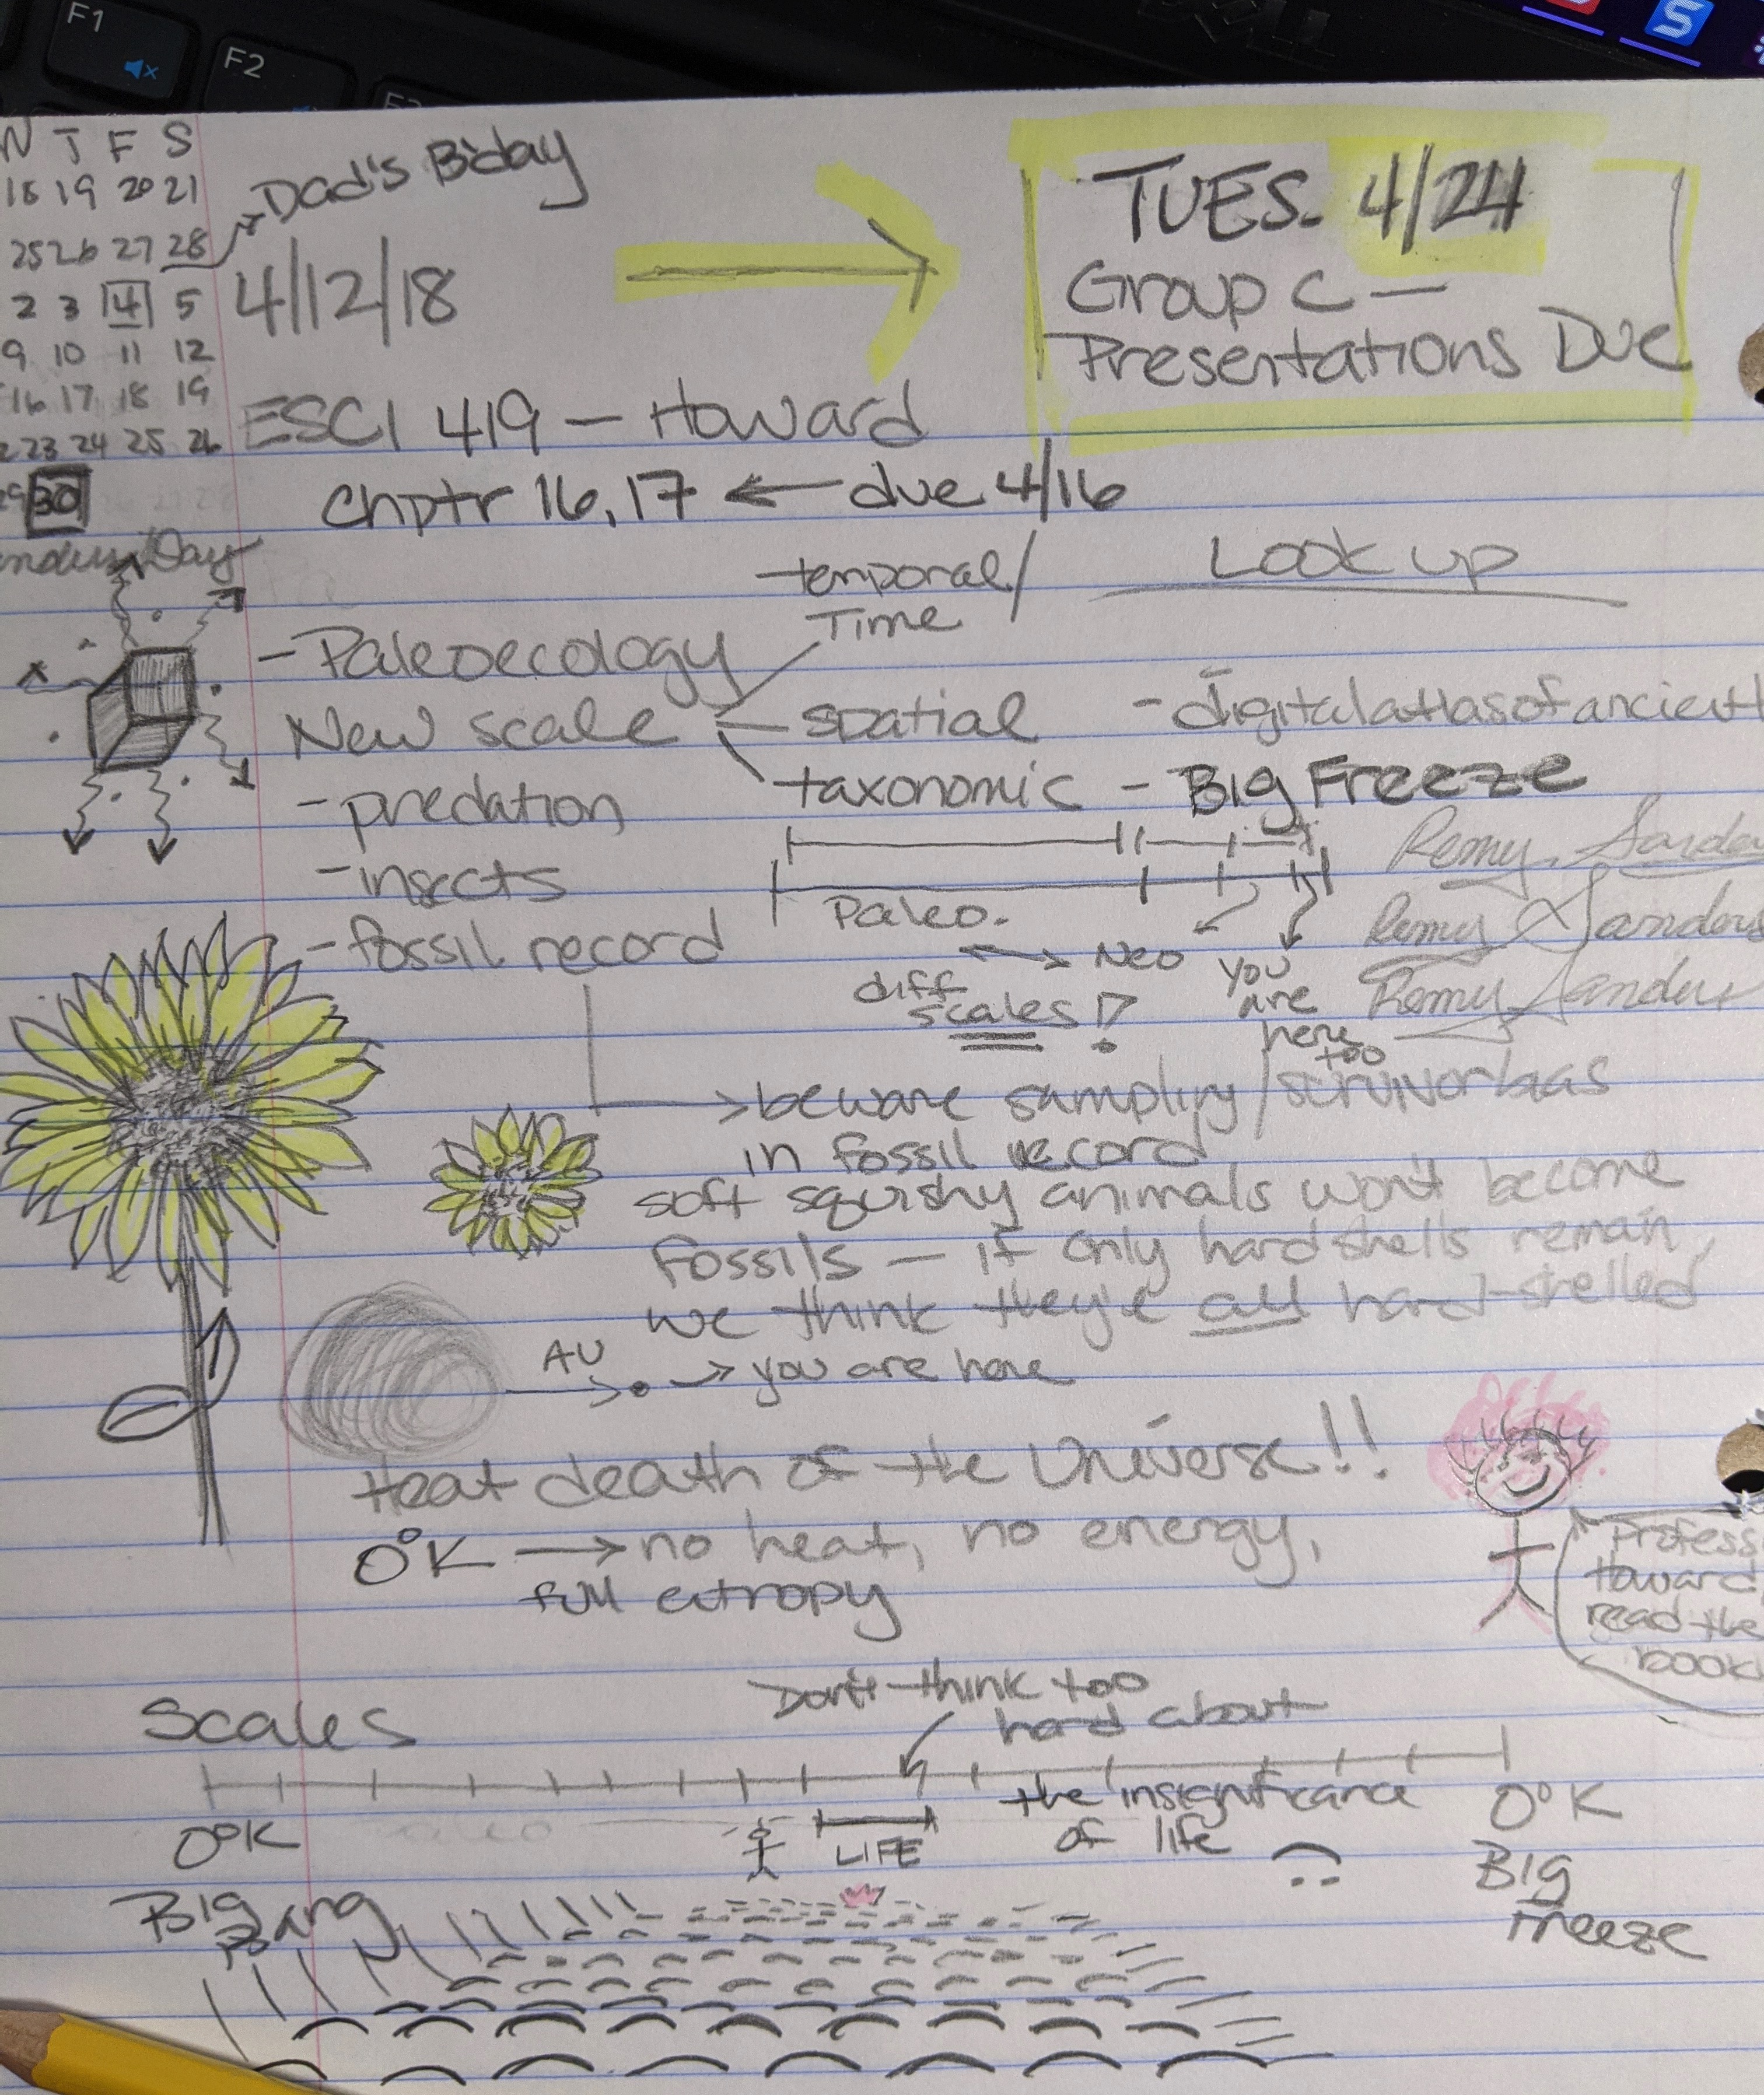 F1
F2
DELL
W T F S
18 19 20 21
25 26 27 28
Dad's B'day
2 3 4 5
9 10 11 12
16 17 18 19
23 24 25 26
30
Day
4/12/18
TUES. 4/24
Group C —
Presentations Due
ESCI 419 — Howard
Chptr 16, 17 ← due 4/16
Look up
temporal/
Time
- Paleoecology
New scale
- spatial
taxonomic
- digitalatlasofancient
- Big Freeze
- predation
- insects
- fossil record
Paleo.
Neo
diff
scales!?
you
are
here
too
Remy Sanders
Remy Sanders
Remy Sanders
→ beware sampling/survivor bias
in fossil record
soft squishy animals won't become
fossils — if only hard shells remain,
we think they're all hard-shelled
AU
→ you are here
Heat death of the Universe!!
0°K → no heat, no energy,
full entropy
Profess
Howard
read the
book
Scales
Don't think too
hard about
the insignificance
of life
0°K
LIFE
0°K
Big Bang
Big
Freeze